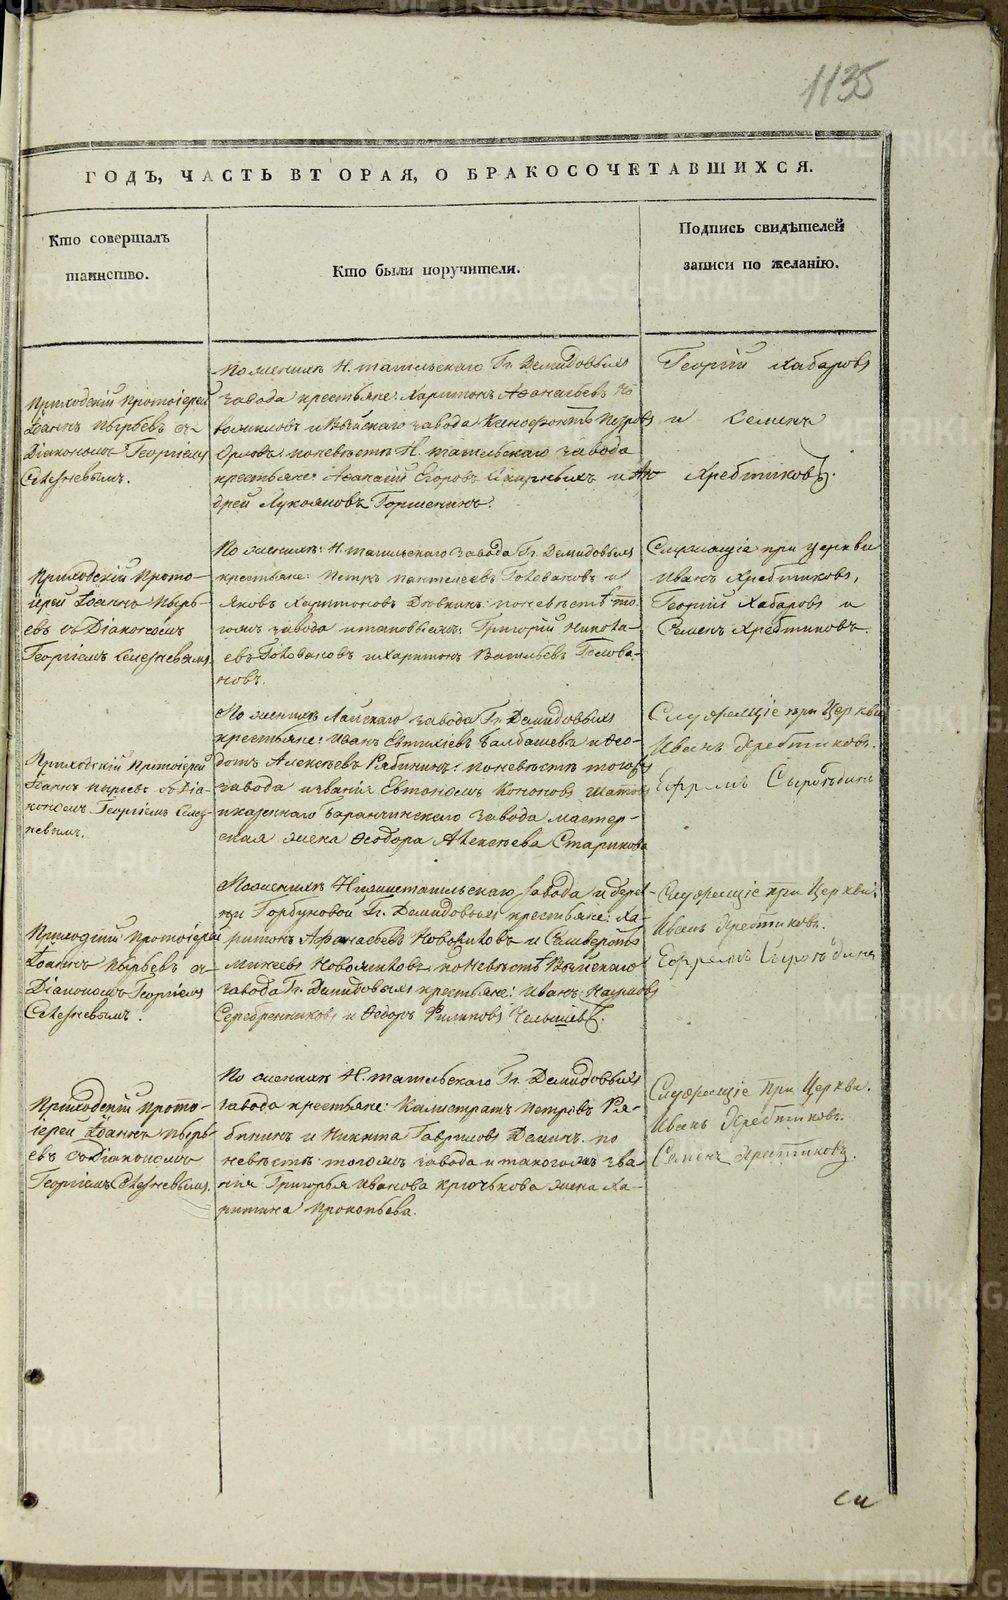 1135
ГОДЪ, ЧАСТЬ ВТОРАЯ, О БРАКОСОЧЕТАВШИХСЯ.
Кто совершалъ
таинство.
Кто были поручители.
Подпись свидѣтелей
записи по желанію.
Приходскій Протоіерей
Іоаннъ Пырьевъ съ
Діакономъ Георгіемъ
Селезневымъ.
По женихѣ Н. тагильскаго Гг. Демидовыхъ
завода крестьяне: Харитонъ Аѳанасьевъ Но
вожиловъ и Выйскаго завода Ксенофонтъ Петровъ
Орловъ: по невѣстѣ Н. тагильскаго завода
крестьяне: Аѳанасій Егоровъ и Ан
дрей Лукояновъ Горшенинъ.
Георгій Хабаровъ
и Семенъ
Хребтиковъ.
Приходскій Прото-
іерей Іоаннъ Пырь-
евъ съ Діакономъ
Георгіемъ Селезневымъ.
По женихѣ: Н. тагильскаго завода Гг. Демидовыхъ
крестьяне: Петръ Пантелеевъ Головановъ и
Яковъ Харитоновъ по невѣстѣ то
гожъ завода и таковыежъ: Григорій Никола-
евъ Головановъ и Харитонъ Васильевъ Голова-
новъ.
Служащіе при церкви
Иванъ Хребтиковъ,
Георгій Хабаровъ и
Семенъ Хребтиковъ.
Приходскій Протоіерей
Іоаннъ Пырьевъ съ Діа-
кономъ Георгіемъ Селез-
невымъ.
По женихѣ Лайскаго завода Гг. Демидовыхъ
крестьяне: Иванъ Евтихіевъ Балбашевъ и Ѳео-
дотъ Алексѣевъ Рябининъ: по невѣстѣ тогожъ
завода и званія Евтономъ Кононовъ
и казеннаго Баранчинскаго завода мастер-
ская жена Ѳеодора Алексѣева Старикова
Служащіе при Церкви
Иванъ Хребтиковъ.
Ефремъ Сыробѣдинъ
Приходскій Протоіерей
Іоаннъ Пырьевъ съ
Діакономъ Георгіемъ
Селезневымъ.
По женихѣ Нижнетагильскаго завода и дерев-
ни Горбуновой Гг. Демидовыхъ крестьяне: Ха-
ритонъ Афанасьевъ Новожиловъ и Селиверстъ
Минеевъ Новожиловъ по невѣстѣ Выйскаго
завода Гг. Демидовыхъ крестьяне: Иванъ Наумовъ
Серебренниковъ и Ѳедоръ Филиповъ Челышевъ.
Служащіе при Церкви:
Иванъ Хребтиковъ.
Ефремъ Сыробѣдинъ
Приходскій Прото-
іерей Іоаннъ Пырь-
евъ съ Діакономъ
Георгіемъ Селезневымъ.
По женихѣ Н. тагильскаго Гг. Демидовыхъ
завода крестьяне: Калистратъ Петровъ Ря-
бининъ и Никита Гавриловъ Деминъ. по
невѣстѣ тогожъ завода и такогожъ зва-
нія Григорья Иванова Крючкова жена Ха-
ритина Прокопьева.
Служащіе при Церкви.
Иванъ Хребтиковъ.
Семенъ Хребтиковъ.
METRIKI.GASO-URAL.RU